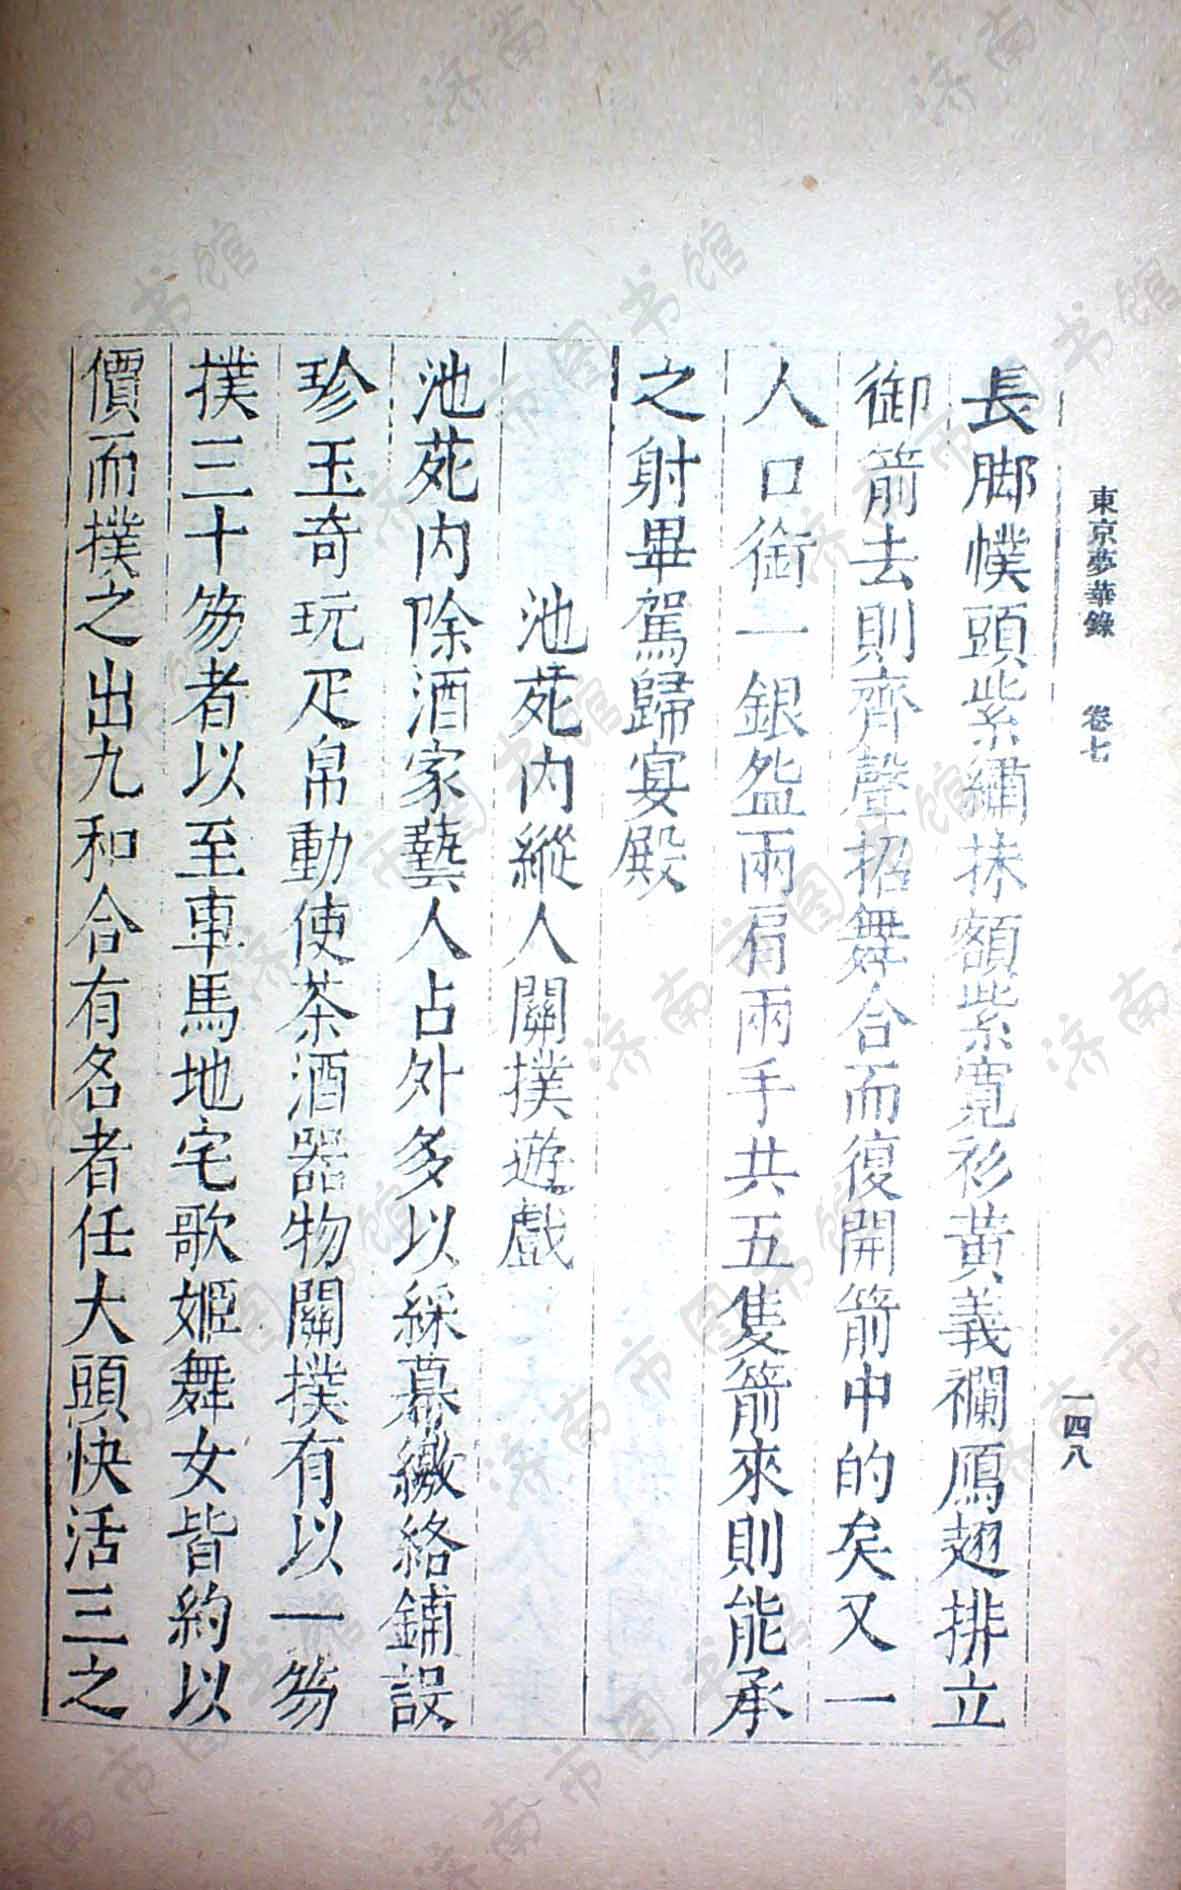 東京夢華錄　卷七
一四八
長脚幞頭紫繡抹額紫寬衫黃義襴鴈翅排立
御箭去則齊聲招舞合而復開箭中的矣又一
人口銜一銀盌兩肩兩手共五隻箭來則能承
之射畢駕歸宴殿
池苑內縱人關撲遊戲
池苑內除酒家藝人占外多以綵幕繳絡鋪設
珍玉奇玩疋帛動使茶酒器物關撲有以一笏
撲三十笏者以至車馬地宅歌姬舞女皆約以
價而撲之出九和合有名者任大頭快活三之
济南市图书馆